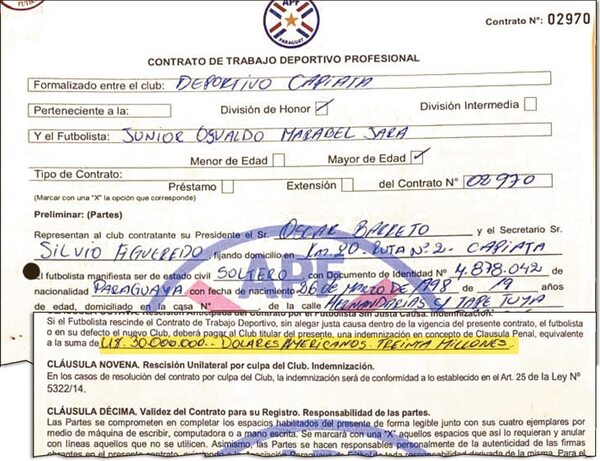 APF
PARAGUAY
Contrato N°: 02970
CONTRATO DE TRABAJO DEPORTIVO PROFESIONAL
Formalizado entre el club: DEPORTIVO CAPIATA
Perteneciente a la: División de Honor División Intermedia
Y el Futbolista: JUNIOR OSVALDO MARABEL JARA
Menor de Edad Mayor de Edad
Tipo de Contrato:
Préstamo Extensión del Contrato N° 02970
(Marcar con una "X" la opción que corresponde)
Preliminar: (Partes)
Representan al club contratante su Presidente el Sr. OSCAR BARRETO y el Secretario Sr.
SILVIO FIGUEREDO, fijando domicilio en KM. 20 - RUTA N° 2 - CAPIATA
El futbolista manifiesta ser de estado civil SOLTERO con Documento de Identidad N° 4.878.042
de nacionalidad PARAGUAYA con fecha de nacimiento 26 MARZO 1998 19
años de edad, domiciliado en la casa N° de la calle HERNANDARIAS Y TAPE TUYA
Rescisión Anticipada del Contrato por el Futbolista Sin Justa Causa. Indemnización:
Si el Futbolista rescinde el Contrato de Trabajo Deportivo, sin alegar justa causa dentro de la vigencia del presente contrato, el futbolista
o en su defecto el nuevo Club, deberá pagar al Club titular del presente, una indemnización en concepto de Clausula Penal, equivalente
a la suma de U$. 30.000.000.- DOLARES AMERICANOS. TREINTA MILLONES.
CLÁUSULA NOVENA. Rescisión Unilateral por culpa del Club. Indemnización.
En los casos de resolución del contrato por culpa del Club, la indemnización será de conformidad a lo establecido en el Art. 25 de la Ley N°
5322/14.
CLÁUSULA DÉCIMA. Validez del Contrato para su Registro. Responsabilidad de las partes.
Las Partes se comprometen en completar los espacios habilitados del presente de forma legible junto con sus cuatro ejemplares por
medio de máquina de escribir, computadora o a mano escrita. Se marcará con una "X" aquellos espacios que así lo requieran y anular
con líneas aquellos que no se utilicen. Asimismo, las Partes se hacen responsables personalmente de la autenticidad de las firmas